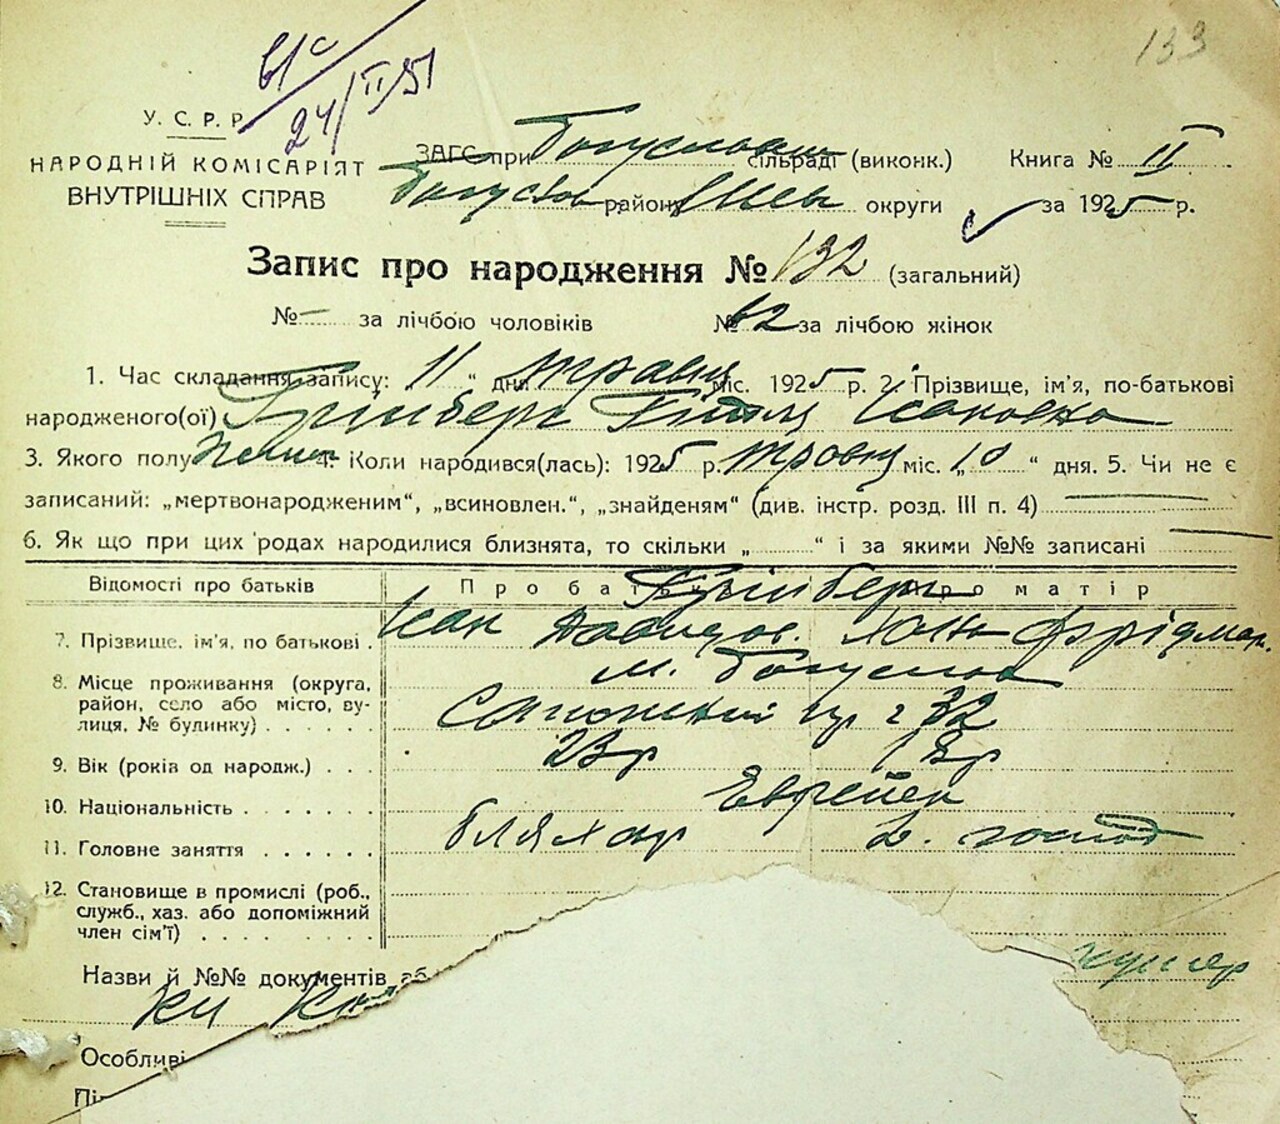 133
24/II/51
У. С. Р. Р.
НАРОДНІЙ КОМІСАРІЯТ
ВНУТРІШНІХ СПРАВ
ЗАГС при Богуславск сільраді (виконк.) Книга № II
Богуслав район округи за 1925 р.
Запис про народження № 132 (загальний)
№ — за лічбою чоловіків № 62 за лічбою жінок
1. Час складання запису: 11 " дня травня міс. 1925 р. 2. Прізвище, ім'я, по-батькові
народженого(ої) Грінберг Ісаковна
3. Якого полу 4. Коли народився(лась): 1925 р. травня міс. „10 " дня. 5. Чи не є
записаний: „мертвонародженим", „всиновлен.", „знайденям" (див. інстр. розд. III п. 4)
6. Як що при цих родах народилися близнята, то скільки „ " і за якими №№ записані
Відомості про батьків Про батька Про матір
Грінберг
7. Прізвище, ім'я, по батькові . Ісак Давидов. Хана Фрідман
8. Місце проживання (округа, м. Богуслав
район, село або місто, ву-
лиця, № будинку) . . . . . . 32
9. Вік (років од народж.) . . . 23р 18р
10. Національність . . . . . . Евреїек
11. Головне заняття . . . . . . бляхар д. господ
12. Становище в промислі (роб.,
служб., хаз. або допоміжний
член сім'ї) . . . . . . . .
Назви й №№ документів аб
Особливі
Пі